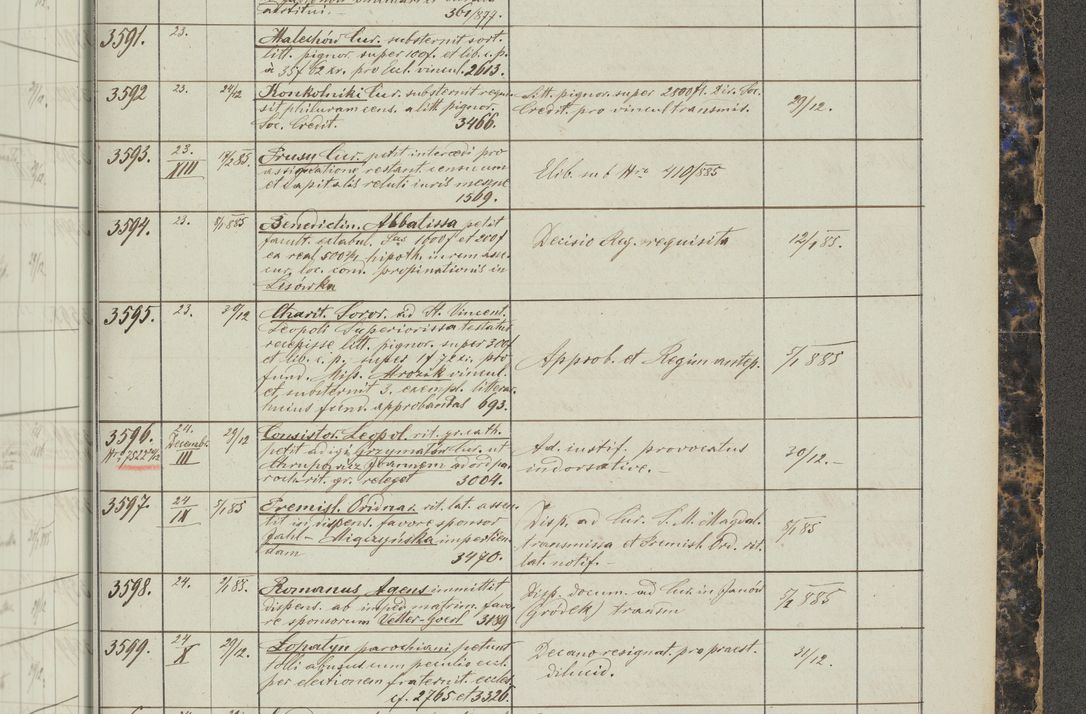 361/877.
3591. 23. Malechów Cur. substernit sort.
litt. pignor. super 100f. et lib. c. p.
à 35f 62 xr. pro Eccl. vincul. 2613.
3592 23. 24/12 Konkolniki Cur. substernit requi-
sit phíluram cens. a litt. pignor.
Soc. Credit. 3466.
Litt. pignor. super 2800 fl. Dir. Soc.
Credit. pro vincul transmis. 29/12.
3593. 23. XIII 17/1 885. Prusy Cur. petit intercedi pro
assignatione restant. censuum
et Capitalis reluti iuris
1569.
Elib. sub Nro 410/885
3594. 23. 8/1 885 Benedictin. Abbatissa petit
facult. extabul. 1000f et 200f
ea real hipoth. in rem
loc. com. propinationis in
Lisówka
Decisio Reg. requisita 12/1 885.
3595. 23. 30/12 Charit. Soror. ad St. Vincent.
Leopoli Superiorissa testatur
recepisse litt. pignor. super 300f
et lib. c. p. super 1f 72 x. pro
fund. Miss. Mrozik vincul.
et substernit 3. exempl. litterar.
huius fund. approbandas 693.
Approb. et Regim antep. 5/1 885
3596. 24. Decembr. III 29/12 Consistor. Leopol. rit. gr. cath.
petit adigi Grzymałów Cur. ut
Joannem ad ord pa-
roch rit. gr. releget 3004.
Nr 7522
Ad. iustif. provocatus
indorsative. - 30/12. -
3597. 24 IX 5/1 85 Premisl. Ordinar. rit. lat. assen-
tit in dispens. favore sponsor
Migrzyńska impertien-
dam 3470.
Disp. ad Cur. S. M. Magdal.
transmissa et Premisl. Ord. rit.
lat. notif. - 5/1 85
3598. 24. 2/1 85. Romanus Agens immittit
dispens. ab imped matrim. favo-
re sponsorum Vetter-Goesl 3139
Disp. docum. ad Cur. in Janów
(gródek) transm 5/2 885
3599. 24 X 29/12. Łopatyn parochiani petunt
tolli abusus cum peculio eccl.
per electionem fraternit. eccles.
cf. 2765 et 3326.
Decano resignat. pro praest.
dilucid. 31/12.